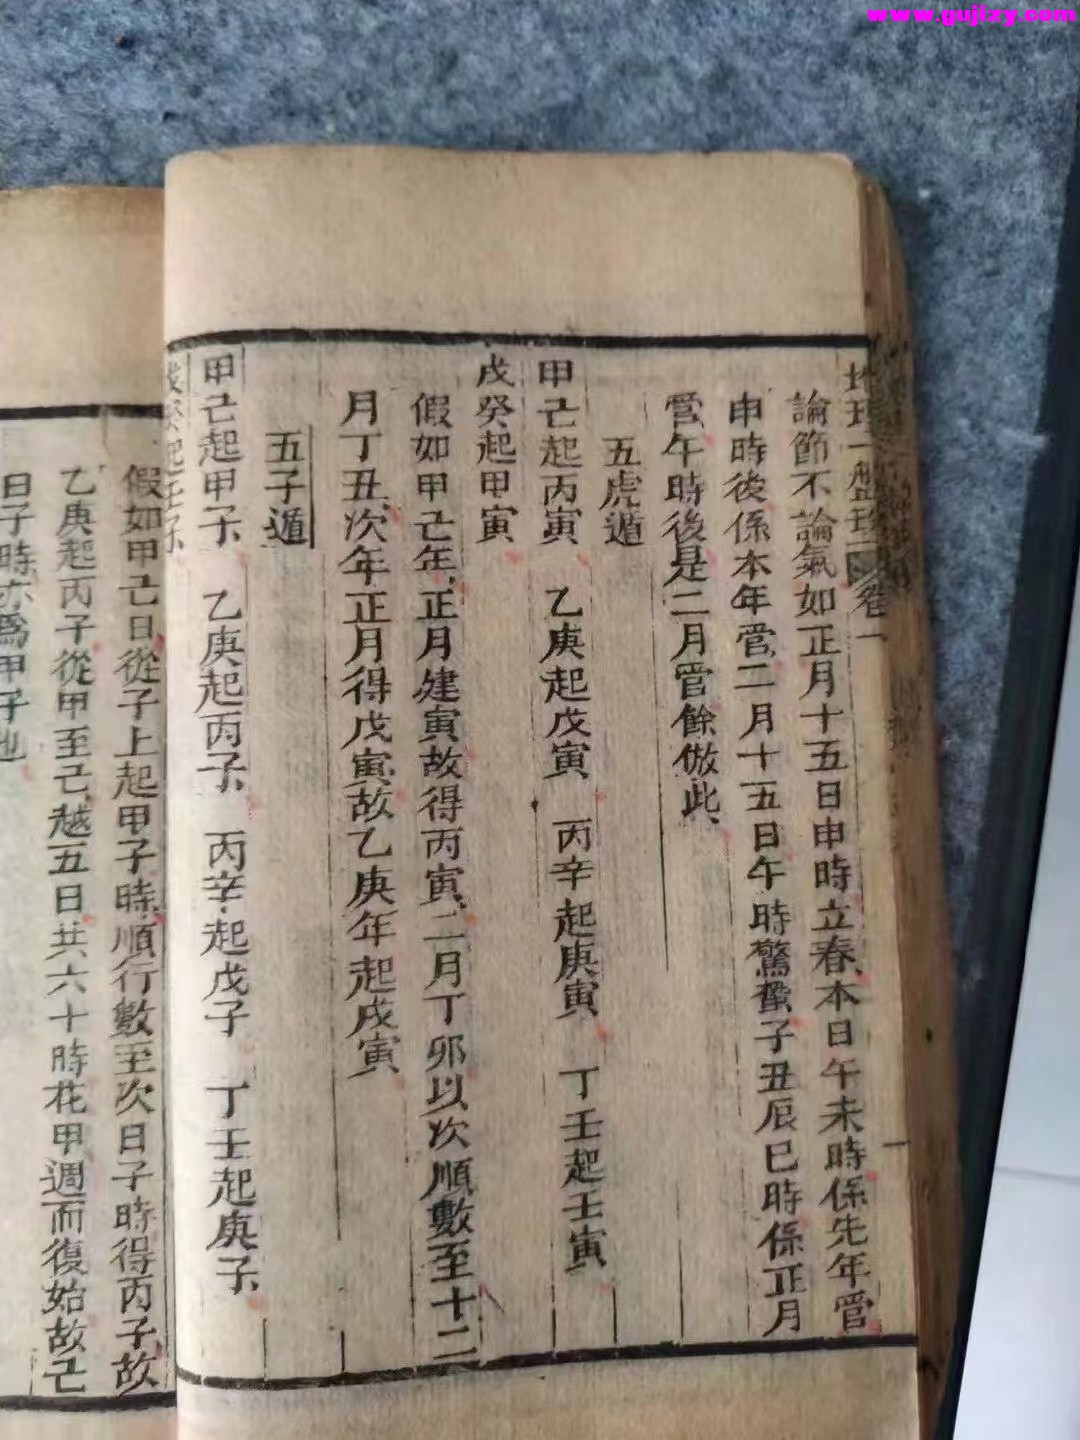 www.gujizy.com
地理一盤珍 卷一
論節不論氣如正月十五日申時立春、本日午未時係先年管
申時後係本年管、二月十五日午時驚蟄子丑辰巳時係正月
管、午時後是二月管餘倣此、
五虎遁
甲己起丙寅 乙庚起戊寅 丙辛起庚寅 丁壬起壬寅
戊癸起甲寅
假如甲己年、正月建寅故得丙寅、二月丁卯以次順數至十二
月丁丑、次年正月得戊寅故乙庚年起戊寅
五子遁
甲己起甲子、 乙庚起丙子、 丙辛起戊子 丁壬起庚子、
戊癸起壬子、
假如甲己日從子上起甲子時、順行數至次日子時得丙子、故
乙庚起丙子從甲至己、越五日共六十時花甲週而復始故己
日子時亦為甲子也